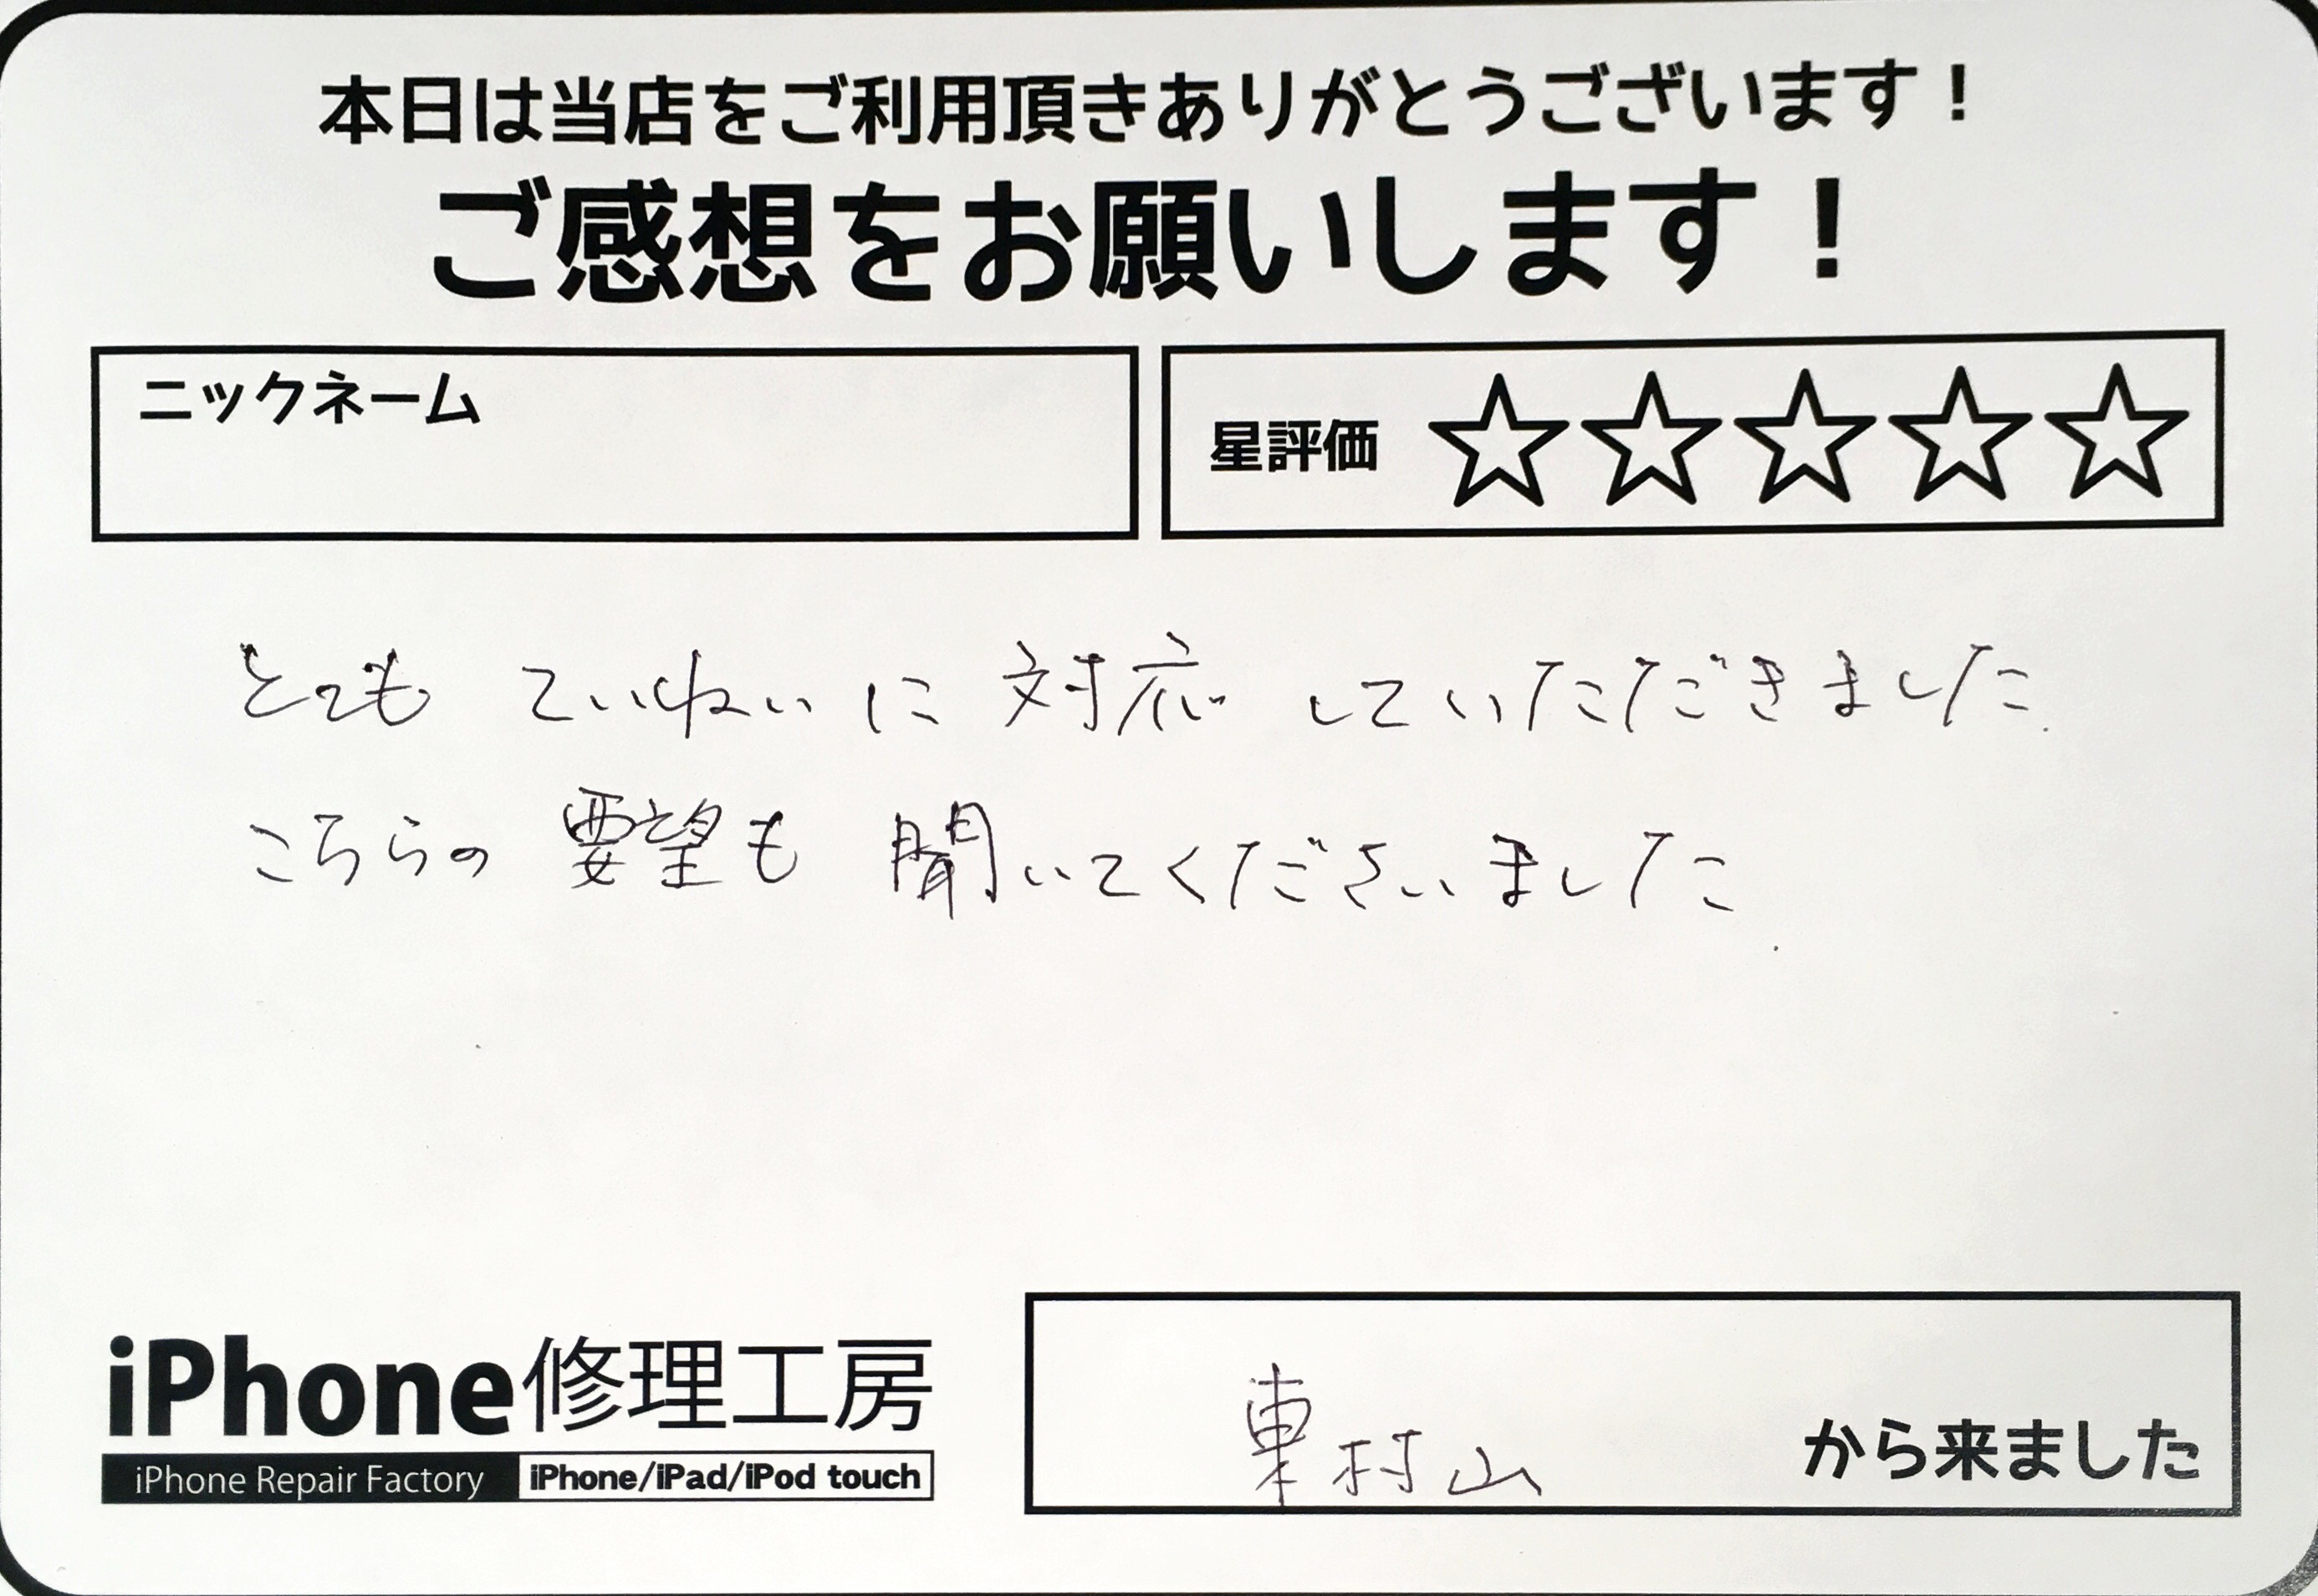 本日は当店をご利用頂きありがとうございます！
ご感想をお願いします！
ニックネーム
星評価 ☆☆☆☆☆
とても ていねいに 対応 していただきました.
こちらの 要望も 聞いてくださいました.
iPhone修理工房
iPhone Repair Factory iPhone/iPad/iPod touch
東村山 から来ました